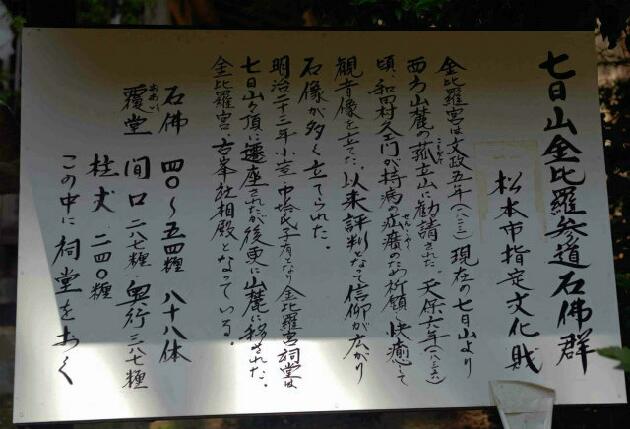 七日山金比羅参道石佛群
松本市指定文化財
金比羅宮は文政五年(一八二二)現在の七日山より
西方山麓の孤立山に勧請された。天保六年(一八三五)
頃、和田村久左門が持病の疝癪のため祈願し快癒して
観音像を立てた。以来評判となって信仰が広がり
石像が多く立てられた。
明治二十三年小室 中塔氏子有となり金比羅宮祠堂は
七日山の頂に遷座されたが後更に山麓に移された。
金比羅宮、高峯社相殿となっている。
石佛 四〇〜五四糎 八十八体
覆堂 間口 二八七糎 奥行 三八七糎
柱丈 二四〇糎
この中に祠堂をおく